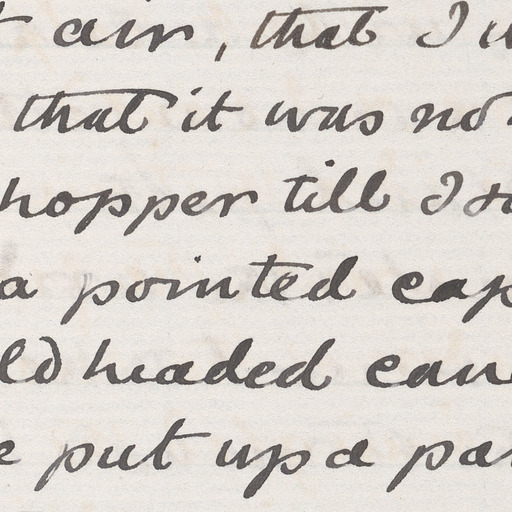 air, that I
that it was no
hopper till I s
a pointed cap
ld headed cane
e put up a par